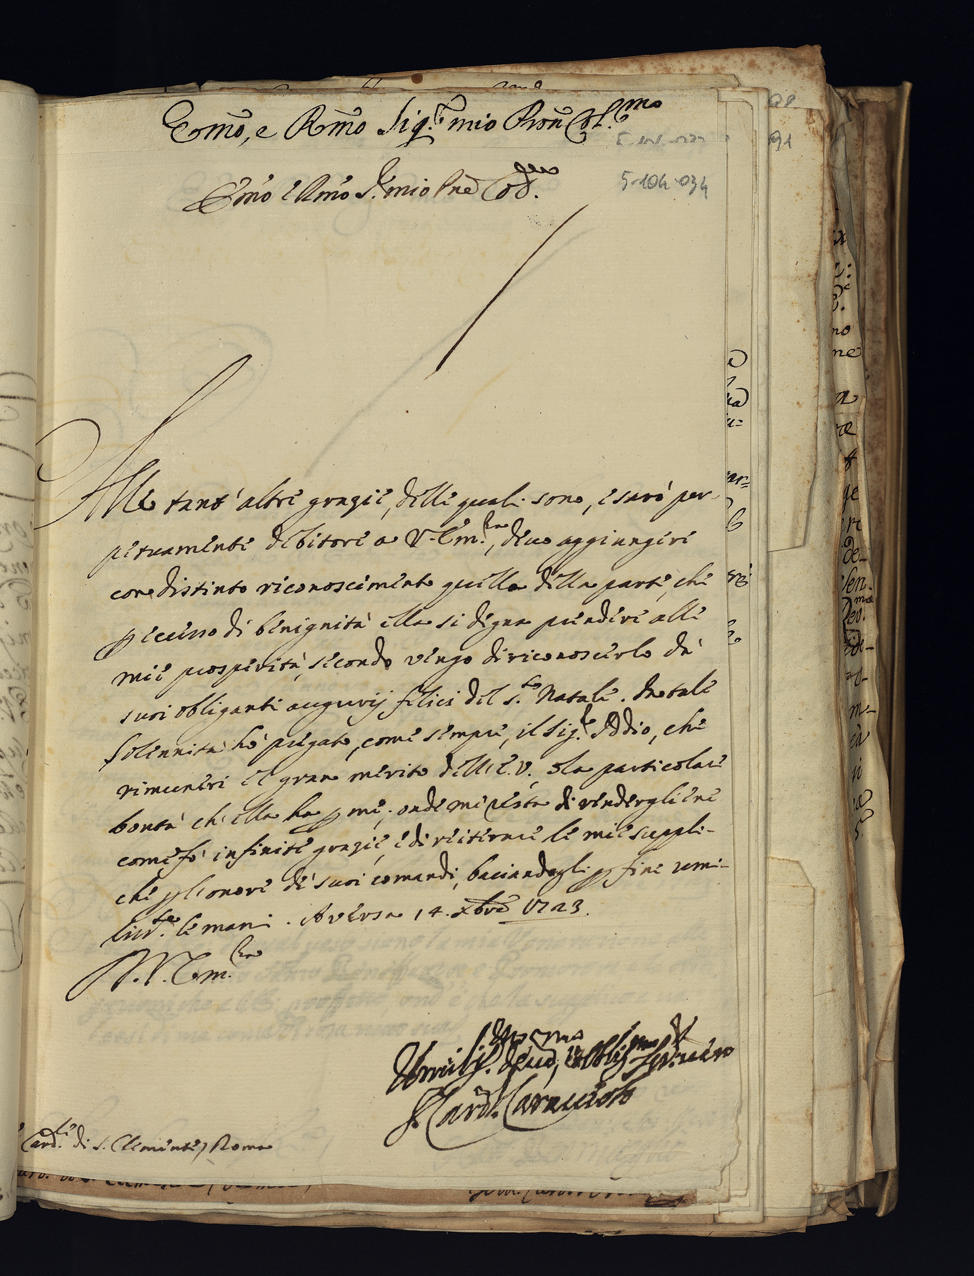 Emo, e Rmo Sig.r mio Pron Col.mo
5-104-034
Emo e Rmo S.r mio Pne Cod.
Alle tant' altre grazie, delle quali sono, e sarò per-
petuamente debitore a V. Em.za, devo aggiungere
con distinto riconoscimento quella della parte, che
p eccesso di benignità ella si degna prendere alle
mie prosperità, secondo vengo di riconoscerlo dà
suoi obliganti augurij felici del S.to Natale. In tale
solennità hò pregato, come sempre, il Sig.r Iddio, che
rimuneri il gran merito dell'E.V. e la particolare
bontà ch' ella ha p me; onde mi resta di rendergliene
come fò infinite grazie, e di reiterare le mie suppli-
che p l'onore de' suoi comandi, baciandogli p fine umi-
liss.te le mani. Aversa 14. Xbre 1723.
D. V. Em.za
Umiliss.mo Devmo, et Obligmo Ser.re vero
J. Card. Caracciolo
Card.le di S. Clemente, Roma